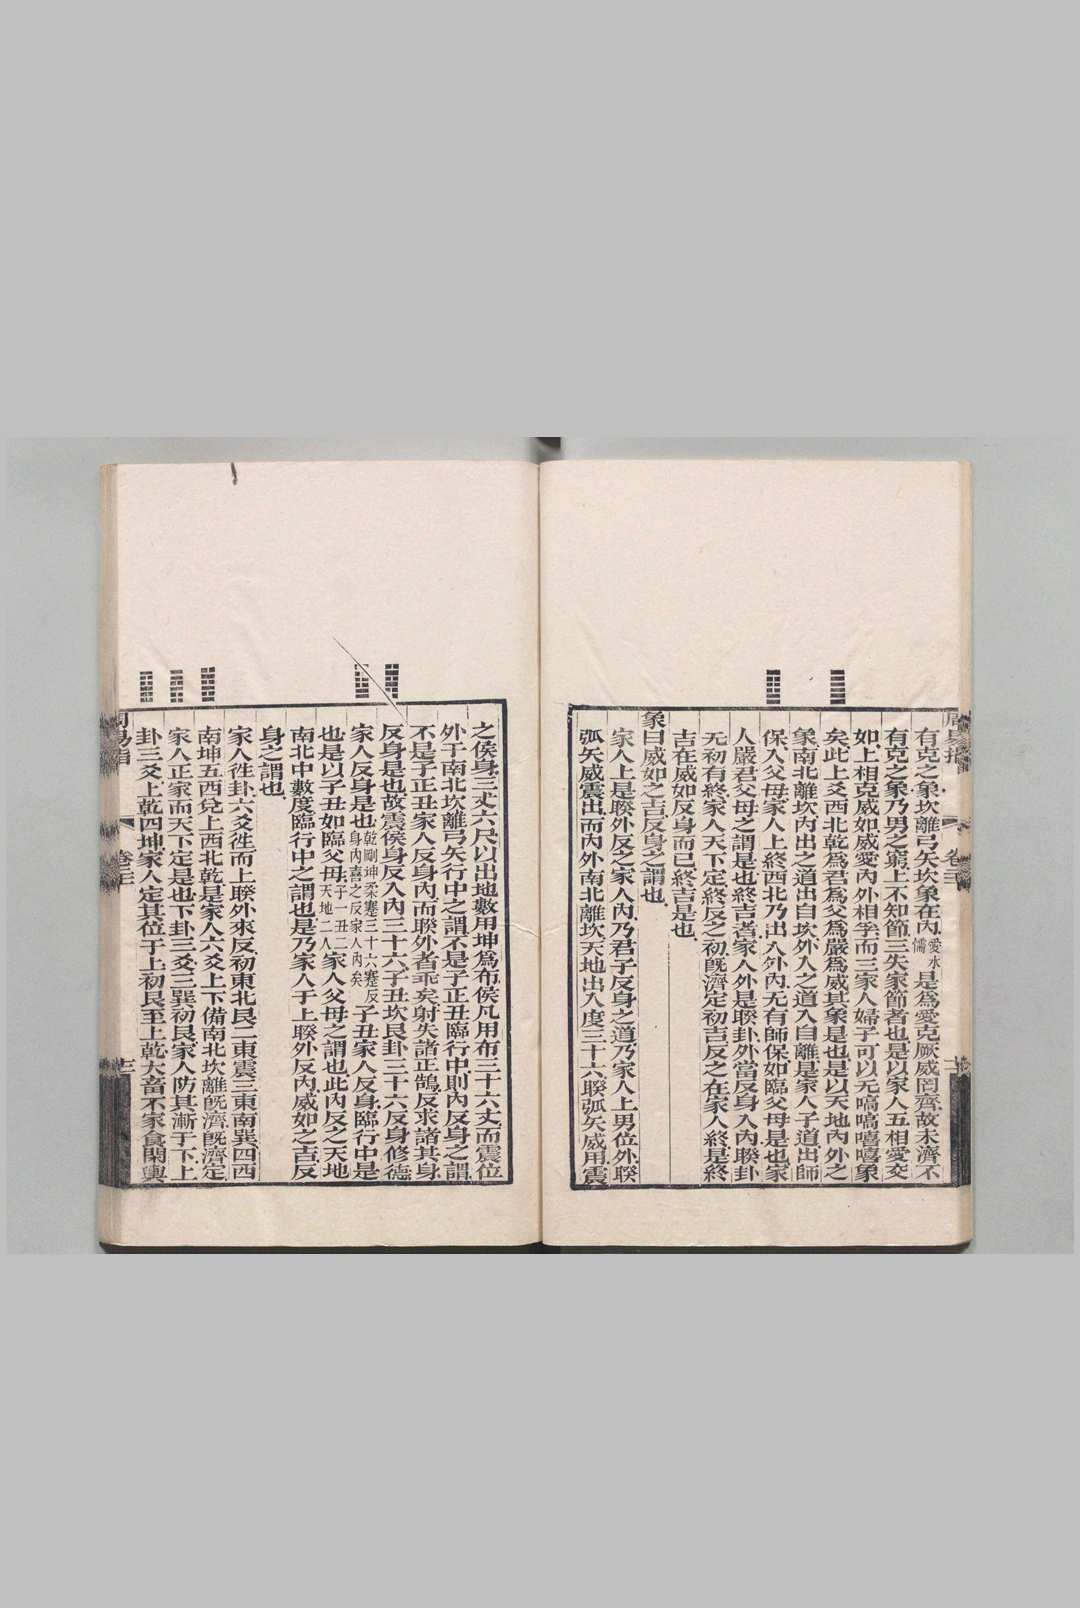 周易指
卷三
有克之象坎離弓矢坎象在內愛水儒是爲愛克厥威罔齊故未濟不
有克之象乃男之窮上不知節三失家節者也是以家人五相愛交
如上相克威如威愛內外相孚而三家人婦子可以无嗃嗃嘻嘻象
矣此上爻西北乾爲君爲父爲嚴爲威其象是也是以天地內外之
象南北離坎內出之道出自坎外入之道入自離是家人子道出師
保入父母家人上終西北乃出入外內无有師保如臨父母是也家
人嚴君父母之謂是也終吉者家人外是睽卦外當反身入內睽卦
无初有終家人天下定終反之初既濟定初吉反之在家人終是終
吉在威如反身而已終吉是也
象曰威如之吉反身之謂也
家人上是睽外反之家人內乃君子反身之道乃家人上男位外睽
弧矢威震出而內外南北離坎天地出入度三十六睽弧矢威用震
之侯身三丈六尺以出地數用坤爲布侯凡用布三十六丈而震位
外于南北坎離弓矢行中之謂不是子正丑臨行中則內反身之謂
不是子正丑家人反身內而睽外者乖矣射失諸正鵠反求諸其身
反身是也故震侯身反入內三十六子丑坎艮卦三十六反身修德
家人反身是也乾剛坤柔蹇三十六蹇反身內喜之反家人內矣子丑家人反身臨行中是
也是以子丑如臨父母天子一丑二地二人家人父母之謂也此內反之天地
南北中數度臨行中之謂也是乃家人于上睽外反內威如之吉反
身之謂也
家人往卦六爻往而上睽外來反初東北艮二東震三東南巽四西
南坤五西兌上西北乾是家人六爻上下備南北坎離既濟既濟定
家人正家而天下定是也下卦三爻三巽初艮家人防其漸于下上
卦三爻上乾四坤家人定其位于上初艮至上乾大畜不家食閑輿
周易指
卷三